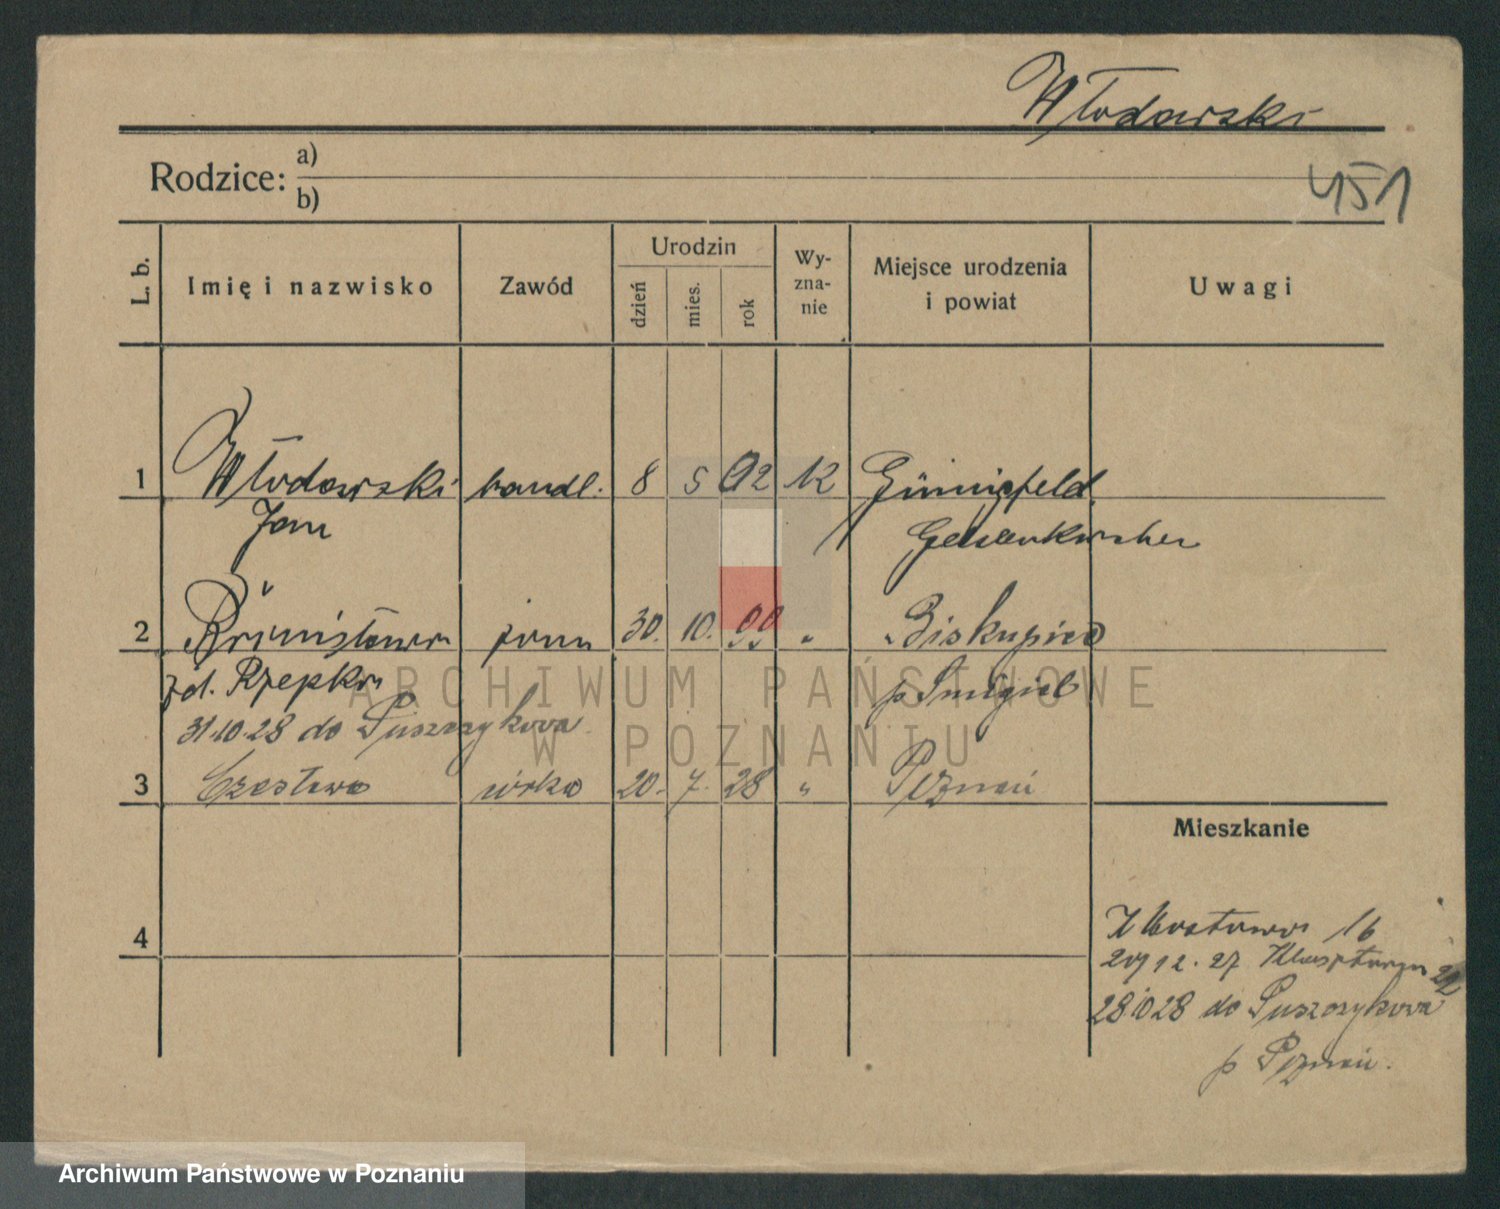 Włodarski
451
Rodzice: a)
b)
L. b. Imię i nazwisko Zawód Urodzin dzień mies. rok Wy-zna-nie Miejsce urodzenia i powiat Uwagi
1 Włodarski handl. 8 5 02 k Günnigfeld
Jan Gelsenkirchen
2 Bronisława żona 30. 10. 99 " Biskupice
zd. Rzepka p Śmigiel
31.10.28 do Puszczykowa
3 Czesława córka 20. 7. 28 " Poznań
Mieszkanie
4
16
12. 27 22
28 10 28 do Puszczykowa
p Poznań.
ARCHIWUM PAŃSTWOWE
W POZNANIU
Archiwum Państwowe w Poznaniu